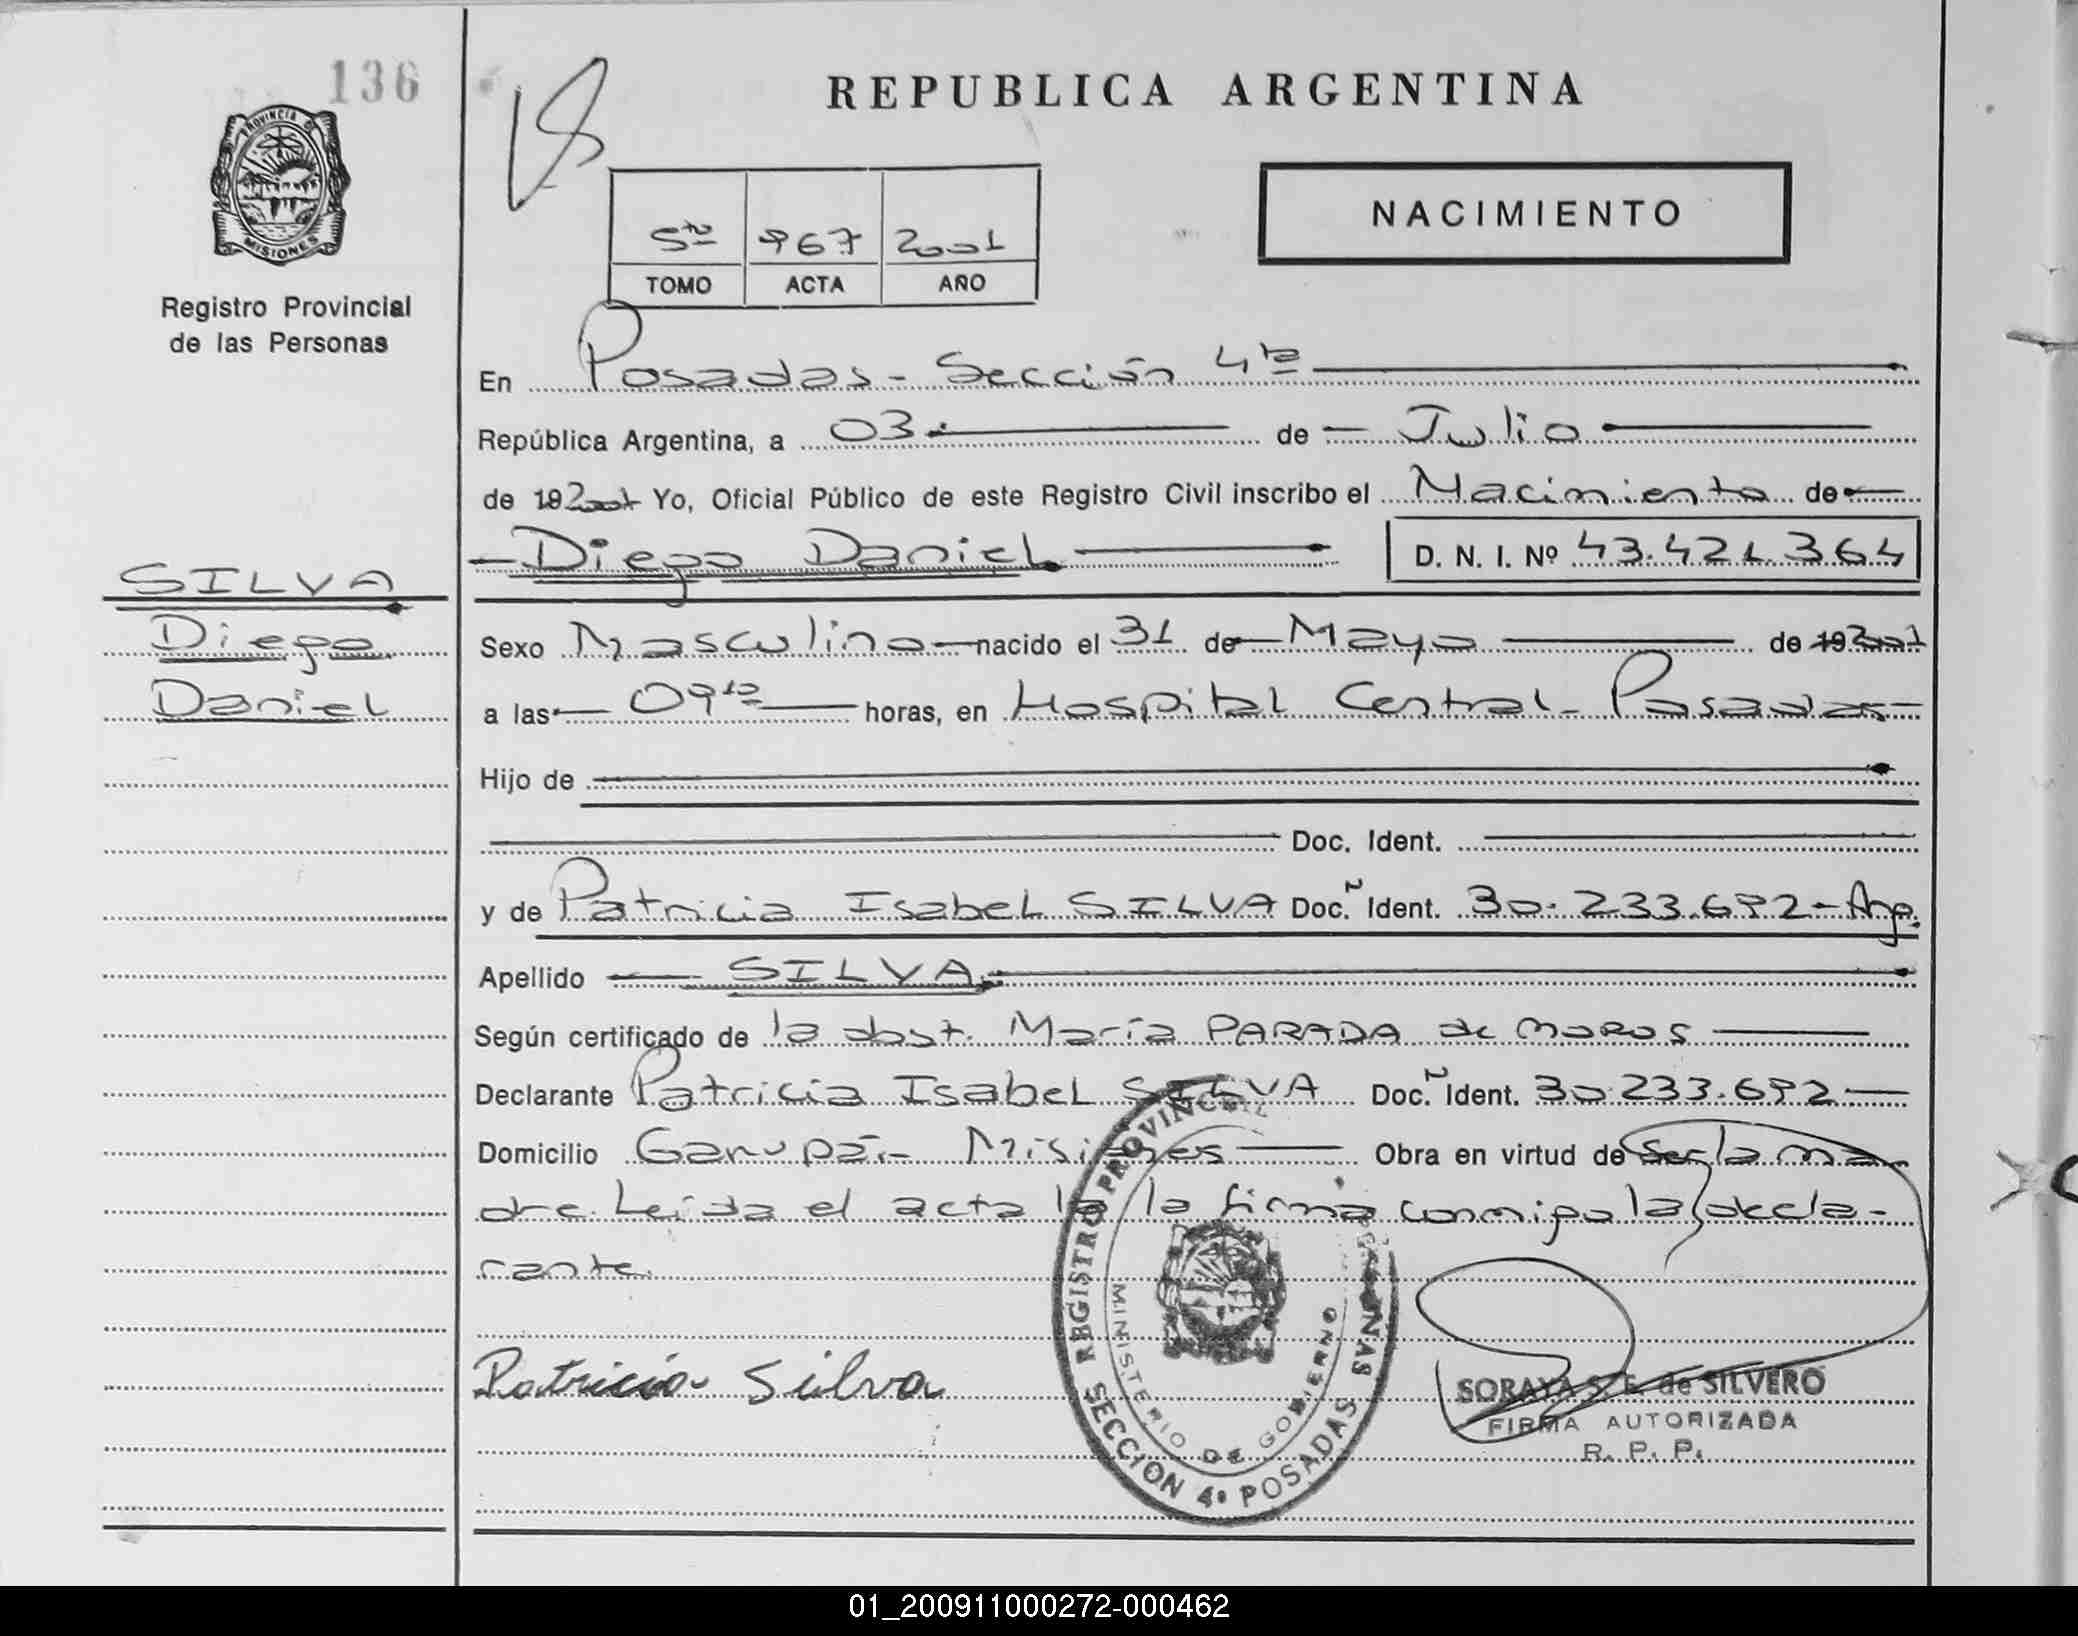 136
REPUBLICA ARGENTINA
PROVINCIA DE
MISIONES
Registro Provincial
de las Personas
5to 967 2001
TOMO ACTA AÑO
NACIMIENTO
En Posadas - Sección 4ta
República Argentina, a 03 de Julio
de 192001 Yo, Oficial Público de este Registro Civil inscribo el Nacimiento de
Diego Daniel D. N. I. Nº 43.421.364
SILVA
Diego
Daniel
Sexo Masculino nacido el 31 de Mayo de 192001
a las 09 horas, en Hospital Central - Posadas -
Hijo de
Doc. Ident.
y de Patricia Isabel SILVA Doc. Ident. 30.233.692 - Arg.
Apellido SILVA
Según certificado de la obst. María PARADA de MOROS
Declarante Patricia Isabel SILVA Doc. Ident. 30.233.692
Domicilio Garupá - Misiones Obra en virtud de Ser la ma
dre. Leída el acta la firma conmigo la decla-
rante.
Patricia Silva
REGISTRO PROVINCIAL PERSONAS
MINISTERIO DE GOBIERNO
SECCION 4ª POSADAS
SORAYA S. E. de SILVERO
FIRMA AUTORIZADA
R. P. P.
01_200911000272-000462